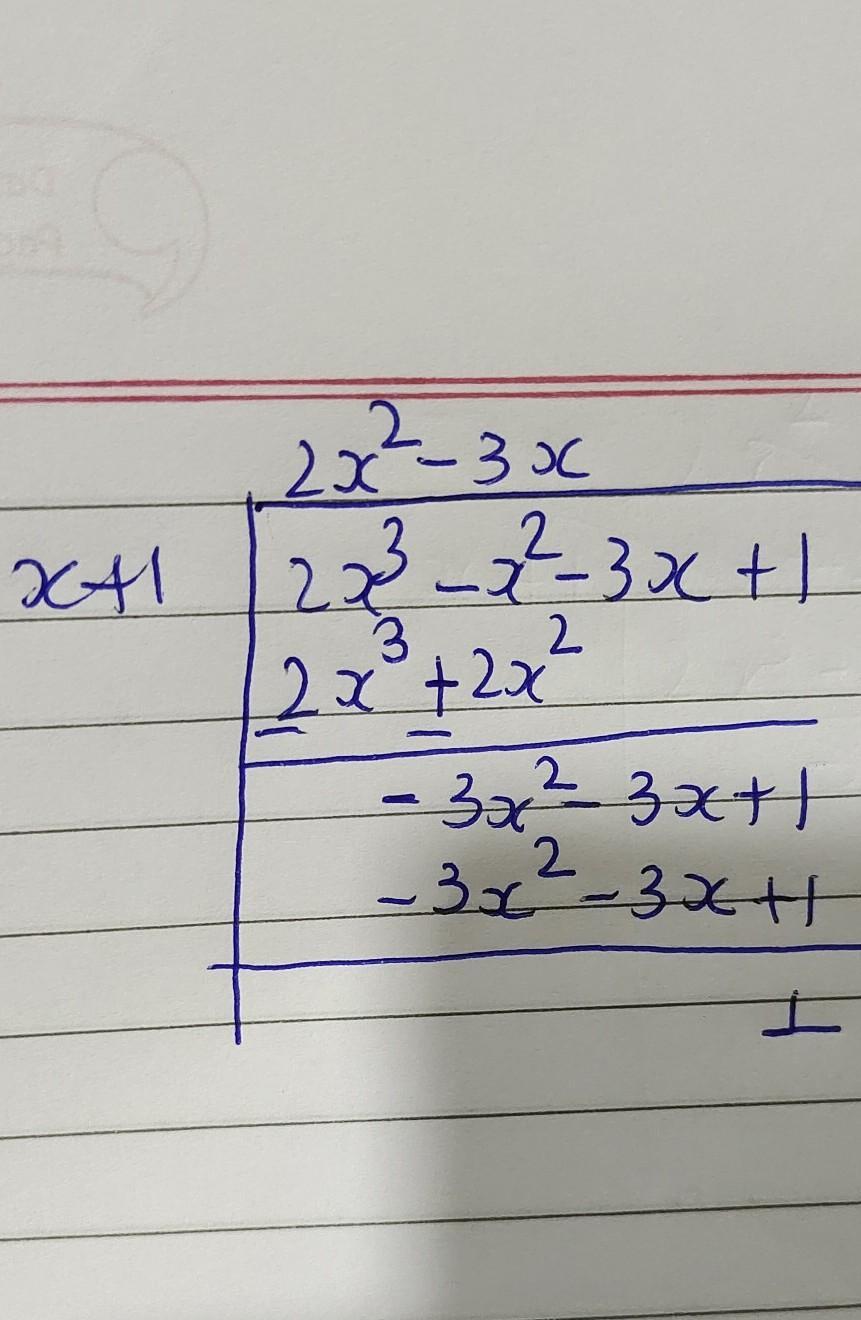 2x² - 3x
x+1 2x³ - x² - 3x + 1
2x³ + 2x²
- -
- 3x² - 3x + 1
- 3x² - 3x + 1
1